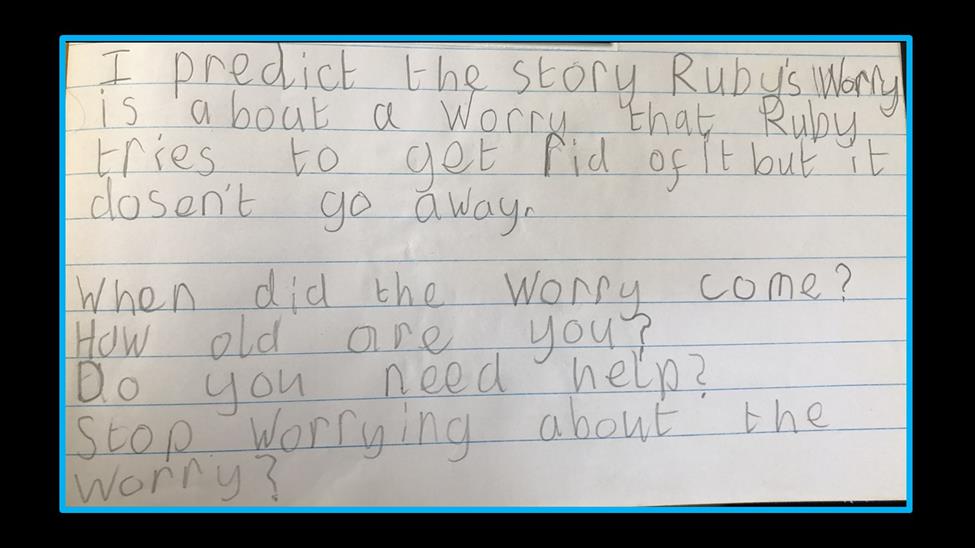 I predict the story Ruby's Worry
is about a worry that Ruby
tries to get rid of it but it
dosen't go away.
When did the worry come?
How old are you?
Do you need help?
Stop worrying about the
worry?